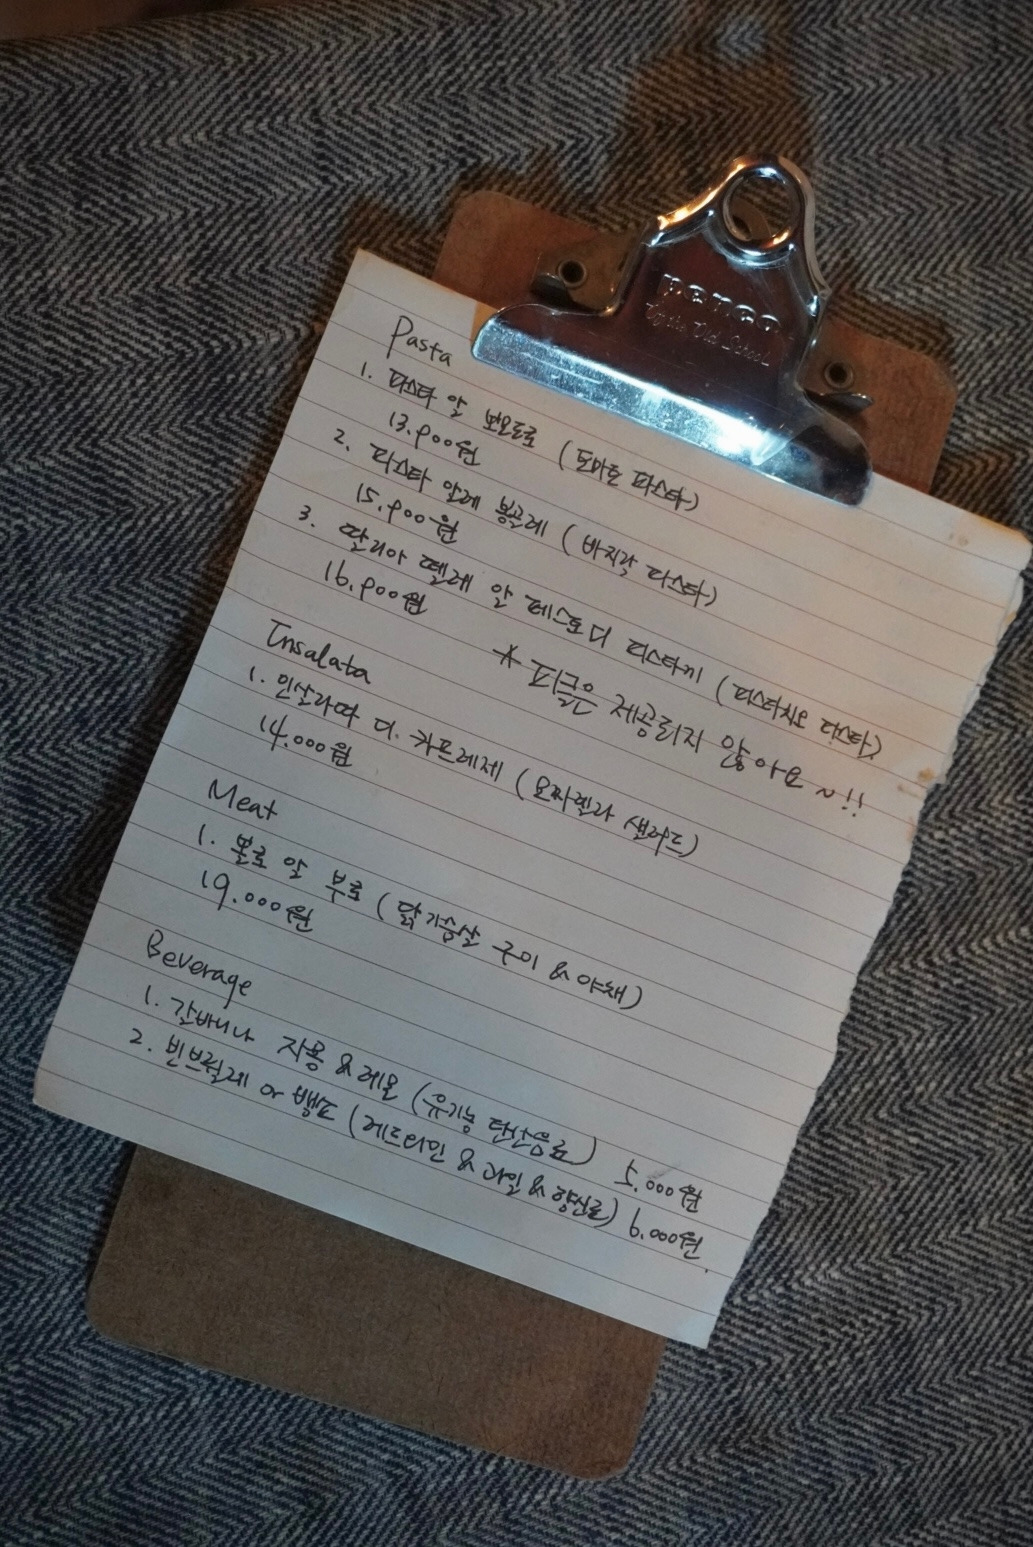 penco
Pasta
1. 파스타 알 뽀모도로 (토마토 파스타)
13.900원
2. 파스타 알레 봉골레 (바지락 파스타)
15.900원
3. 딸리아 뗄레 알 페스토 디 피스타끼 (피스타치오 파스타)
16.900원
* 피클은 제공되지 않아요~!!
Insalata
1. 인살라따 디. 카프레제 (모짜렐라 샐러드)
14.000원
Meat
1. 뽈로 알 부로 (닭가슴살 구이 & 야채)
19.000원
Beverage
1. 갈바니나 자몽 & 레몬 (유기농 탄산음료) 5.000원
2. 빈브륄레 or 뱅쇼 (레드와인 & 과일 & 향신료) 6.000원.